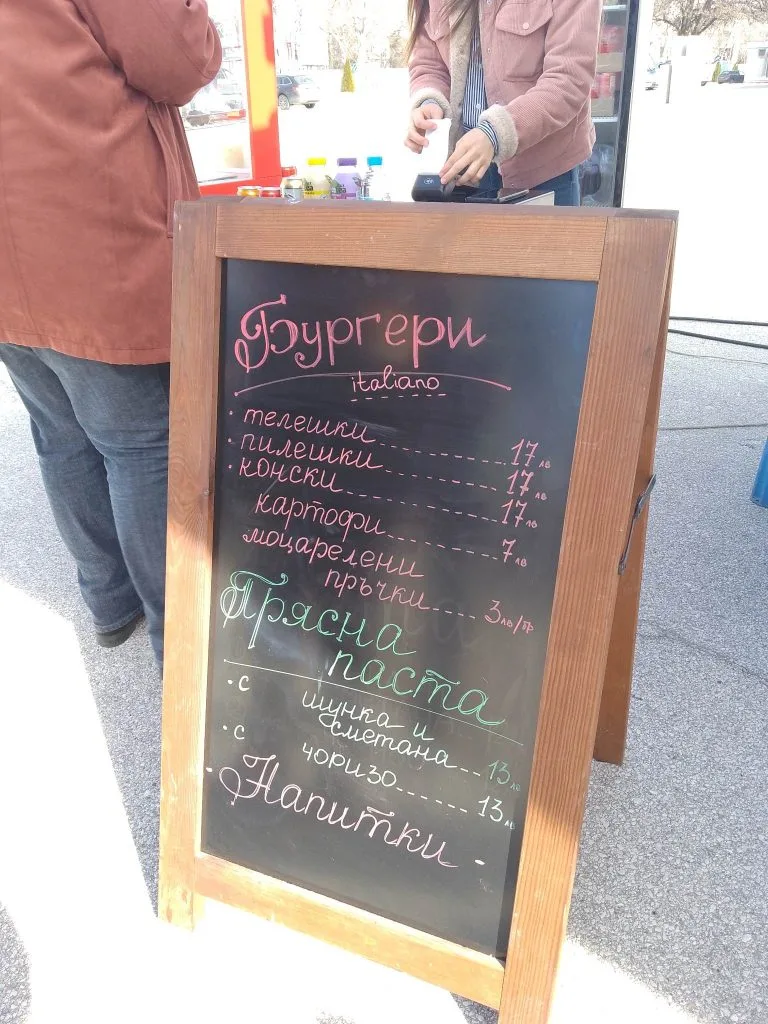 Бургери
italiano
• телешки 17 лв
• пилешки 17 лв
• конски 17 лв
картофи 7 лв
моцарелени
пръчки 3 лв/бр
Прясна
паста
• с шунка и
сметана 13 лв
• с чоризо 13 лв
• Напитки •